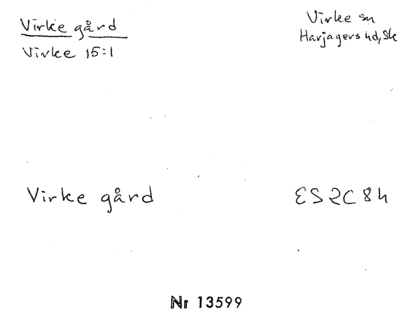 Virke gård
Virke 15:1
Virke sn
Harjagers hd, Sk
Virke gård
ES 2C 8h
Nr 13599